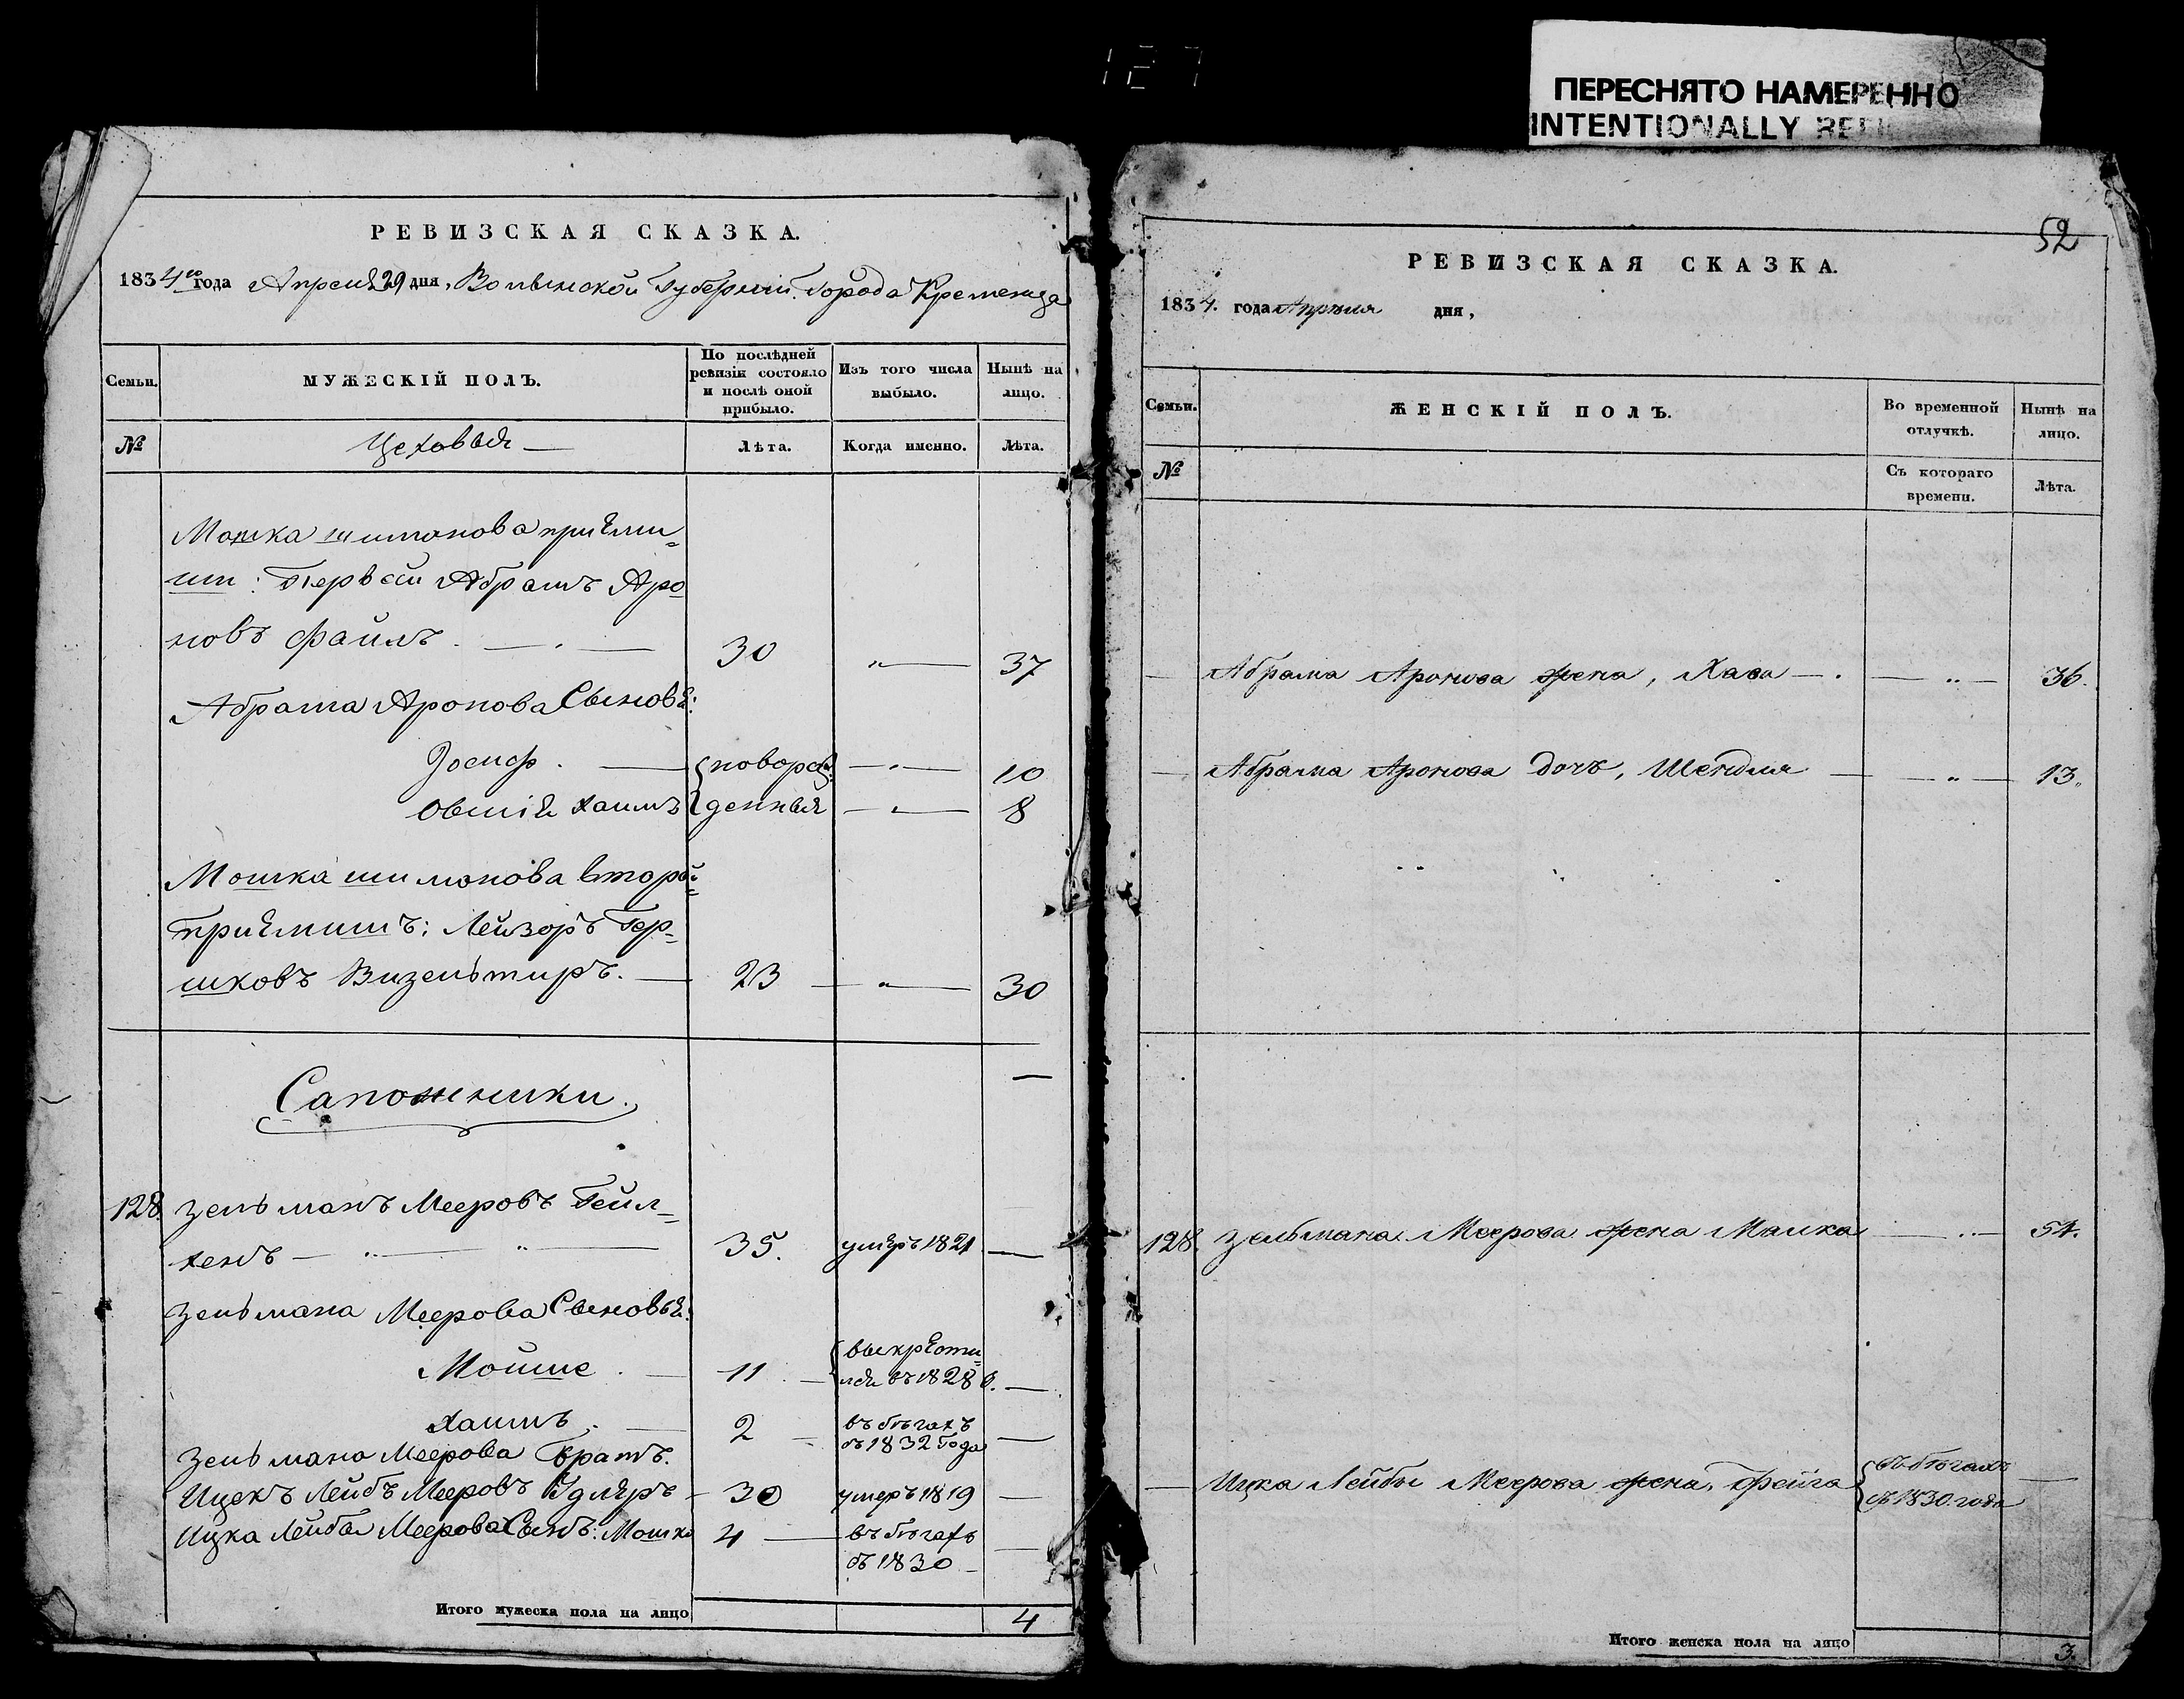 127
ПЕРЕСНЯТО НАМЕРЕННО
INTENTIONALLY
РЕВИЗСКАЯ СКАЗКА.
1834го года Апреля 29 дня, Волынской Губернии. Города Кременца
Семьи.
МУЖЕСКІЙ ПОЛЪ.
По послѣдней ревизіи состояло и послѣ оной прибыло.
Изъ того числа выбыло.
Нынѣ на лицо.
№
Цеховыя —
Лѣта.
Когда именно.
Лѣта.
Мошка шимонова приеми-
ши: Первый Абрамъ Аро
новъ Файлъ. — 30 „ — 37
Абрама Аронова Сыновья:
Іосиф. — новорож — „ — 10
Овшія Хаимъ денныя — „ — 8
Мошка шимонова вторый
приемишъ: Лейзоръ Гер-
шковъ Визельтиръ. — 23 — „ — 30
Сапожники.
128. Зельманъ Мееровъ Гейл-
хенъ — „ — „ — 35. умеръ 1821 —
Зельмана Меерова Сыновья:
Мойше. — 11 — выкрести-
лся въ 1828 г. —
Хаимъ. — 2 — въ бѣгахъ
съ 1832 года —
Зельмана Меерова братъ.
Ицекъ Лейбъ Мееровъ — 30 умеръ 1819 —
Ицка Лейбы Меерова Сынъ: Мошко 4 — въ бѣгахъ
съ 1830 —
Итого мужеска пола на лицо 4
52
РЕВИЗСКАЯ СКАЗКА.
1834. года Апрѣля дня,
Семьи.
ЖЕНСКІЙ ПОЛЪ.
Во временной отлучкѣ.
Нынѣ на лицо.
№
Съ котораго времени.
Лѣта.
— Абрама Аронова жена, Хава — . — „ — 36.
— Абрама Аронова дочь, Шендля — — „ — 13.
128. Зельмана Меерова жена Малка — „ — 54.
— Ицка Лейбы Меерова жена, Фейга въ бѣгахъ —
съ 1830. года
Итого женска пола на лицо 3.